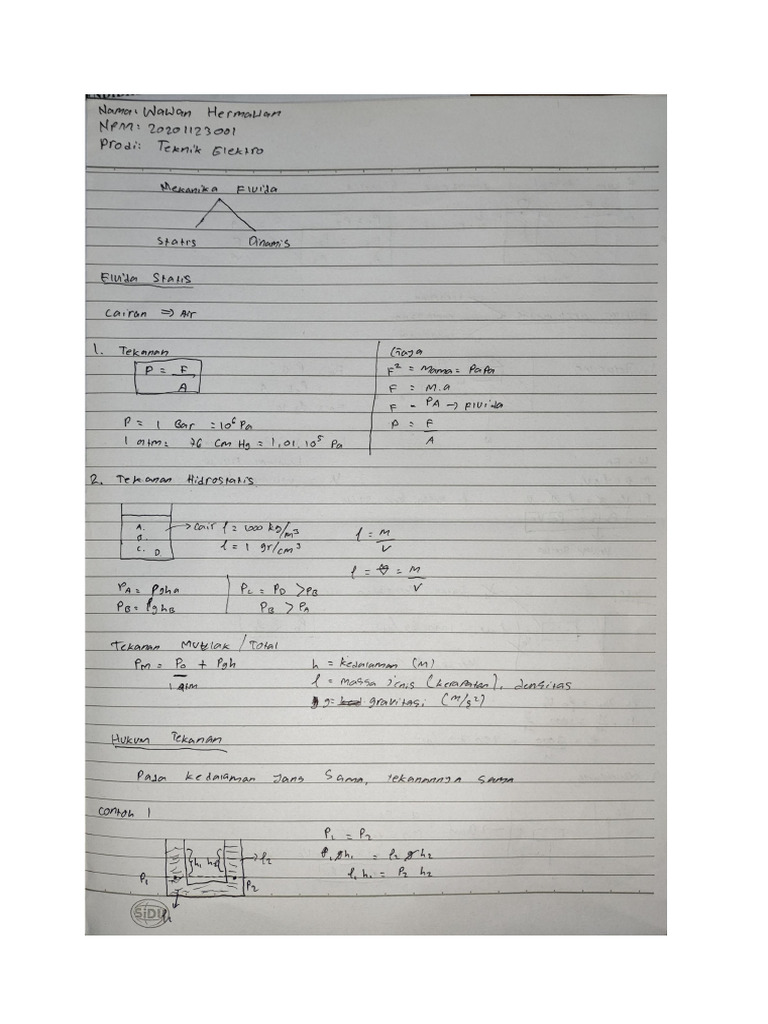 Nama: Wawan Hermawan
NPM: 20201123001
Prodi: Teknik Elektro
Mekanika Fluida
Statis Dinamis
Fluida Statis
Cairan => Air
1. Tekanan
P = F
A
P = 1 Bar = 10⁶ Pa
1 atm = 76 cm Hg = 1,01.10⁵ Pa
Gaya
F² = Mama = Papa
F = M.a
F = PA → Fluida
P = F
A
2. Tekanan Hidrostatis
A.
B.
C. D
→ cair ρ = 1000 kg/m³
ρ = 1 gr/cm³
ρ = M
V
ρ = M
V
PA = ρghA
PB = ρghB
PC = PD > PB
PB > PA
Tekanan Mutlak / Total
PM = P0 + ρgh
1 atm
h = kedalaman (M)
ρ = massa jenis (kerapatan), densitas
g = gravitasi (M/s²)
Hukum Tekanan
Pada kedalaman yang sama, tekanannya sama
Contoh 1
P1 h1 h2 ρ2 P2
ρ1
P1 = P2
ρ1gh1 = ρ2gh2
ρ1h1 = ρ2 h2
SIDU